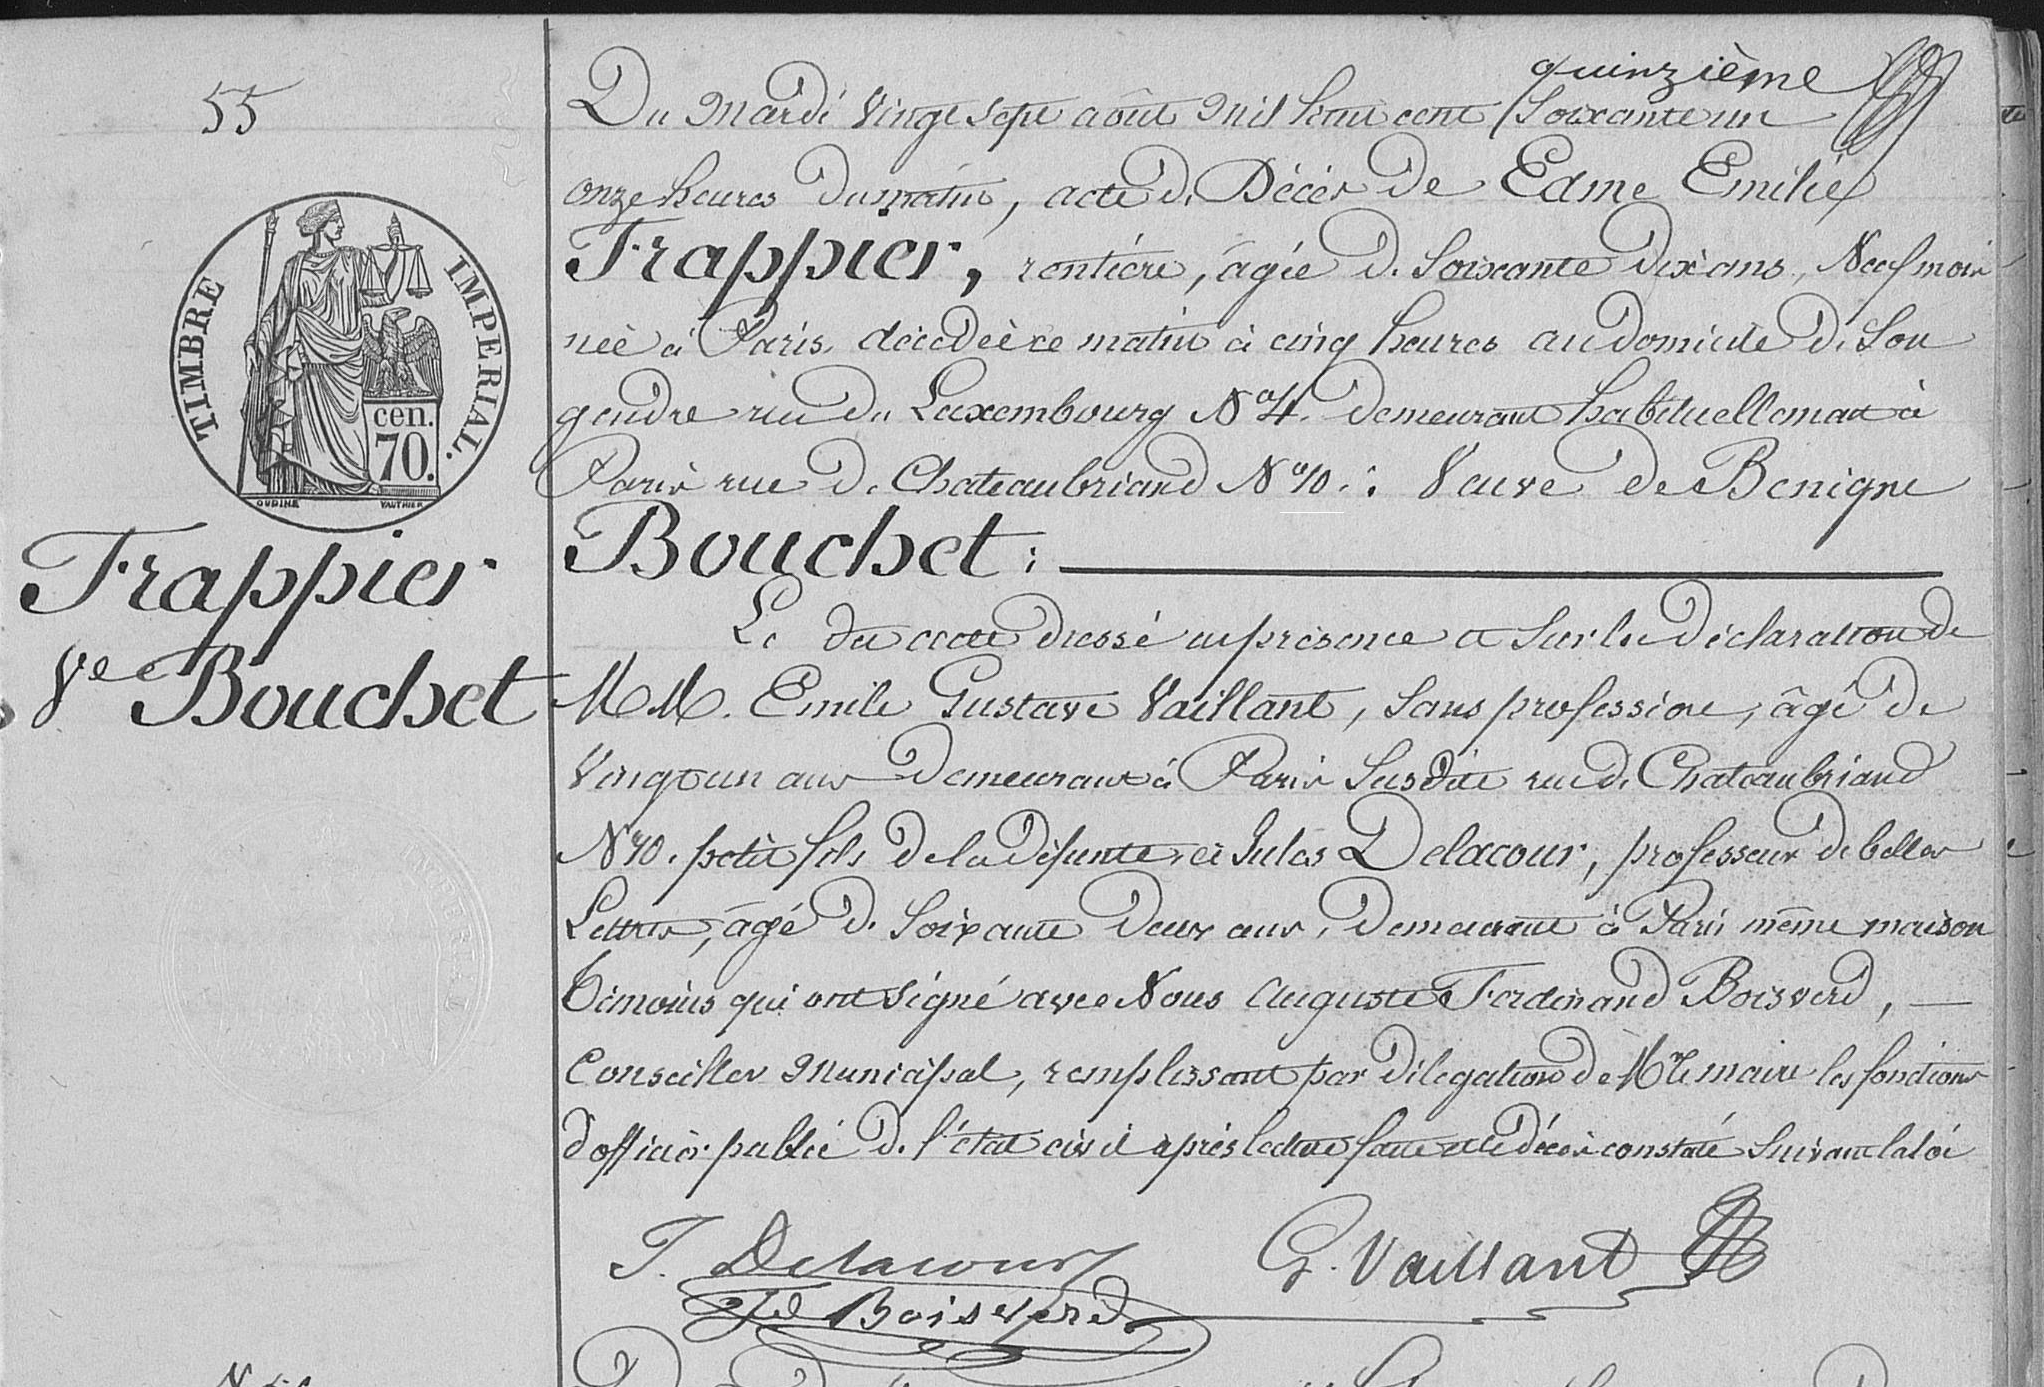 quinzième
55
Du Mardi Vingt sept août Mil huit cent soixante un
onze heures du matin, acte de Décès de Edme Emilie
Frappier, rentière, âgée de soixante dix ans, Neuf mois
née à Paris, décédée ce matin à cinq heures au domicile de son
gendre rue du Luxembourg No 4. demeurant habituellement à
Paris rue de Chateaubriand No 10. : Veuve de Benigne
Bouchet :
TIMBRE IMPERIAL.
cen.
70.
OUDINÉ VAUTHIER
Frappier
Ve Bouchet
Le dit acte dressé en présence et sur la déclaration de
MM. Emile Gustave Vaillant, sans profession, âgé de
Vingt un ans demeurant à Paris susdite rue de Chateaubriand
No 10. petit fils de la défunte, et Jules Delacour, professeur de belles
Lettres, âgé de soixante deux ans, demeurant à Paris même maison
témoins qui ont signé avec Nous Auguste Ferdinand Boisverd,
Conseiller Municipal, remplissant par délégation de Mr le maire les fonctions
d'officier public de l'état civil après lecture faite et le décès constaté suivant la loi
J. Delacour G. Vaillant
fd Boisverd